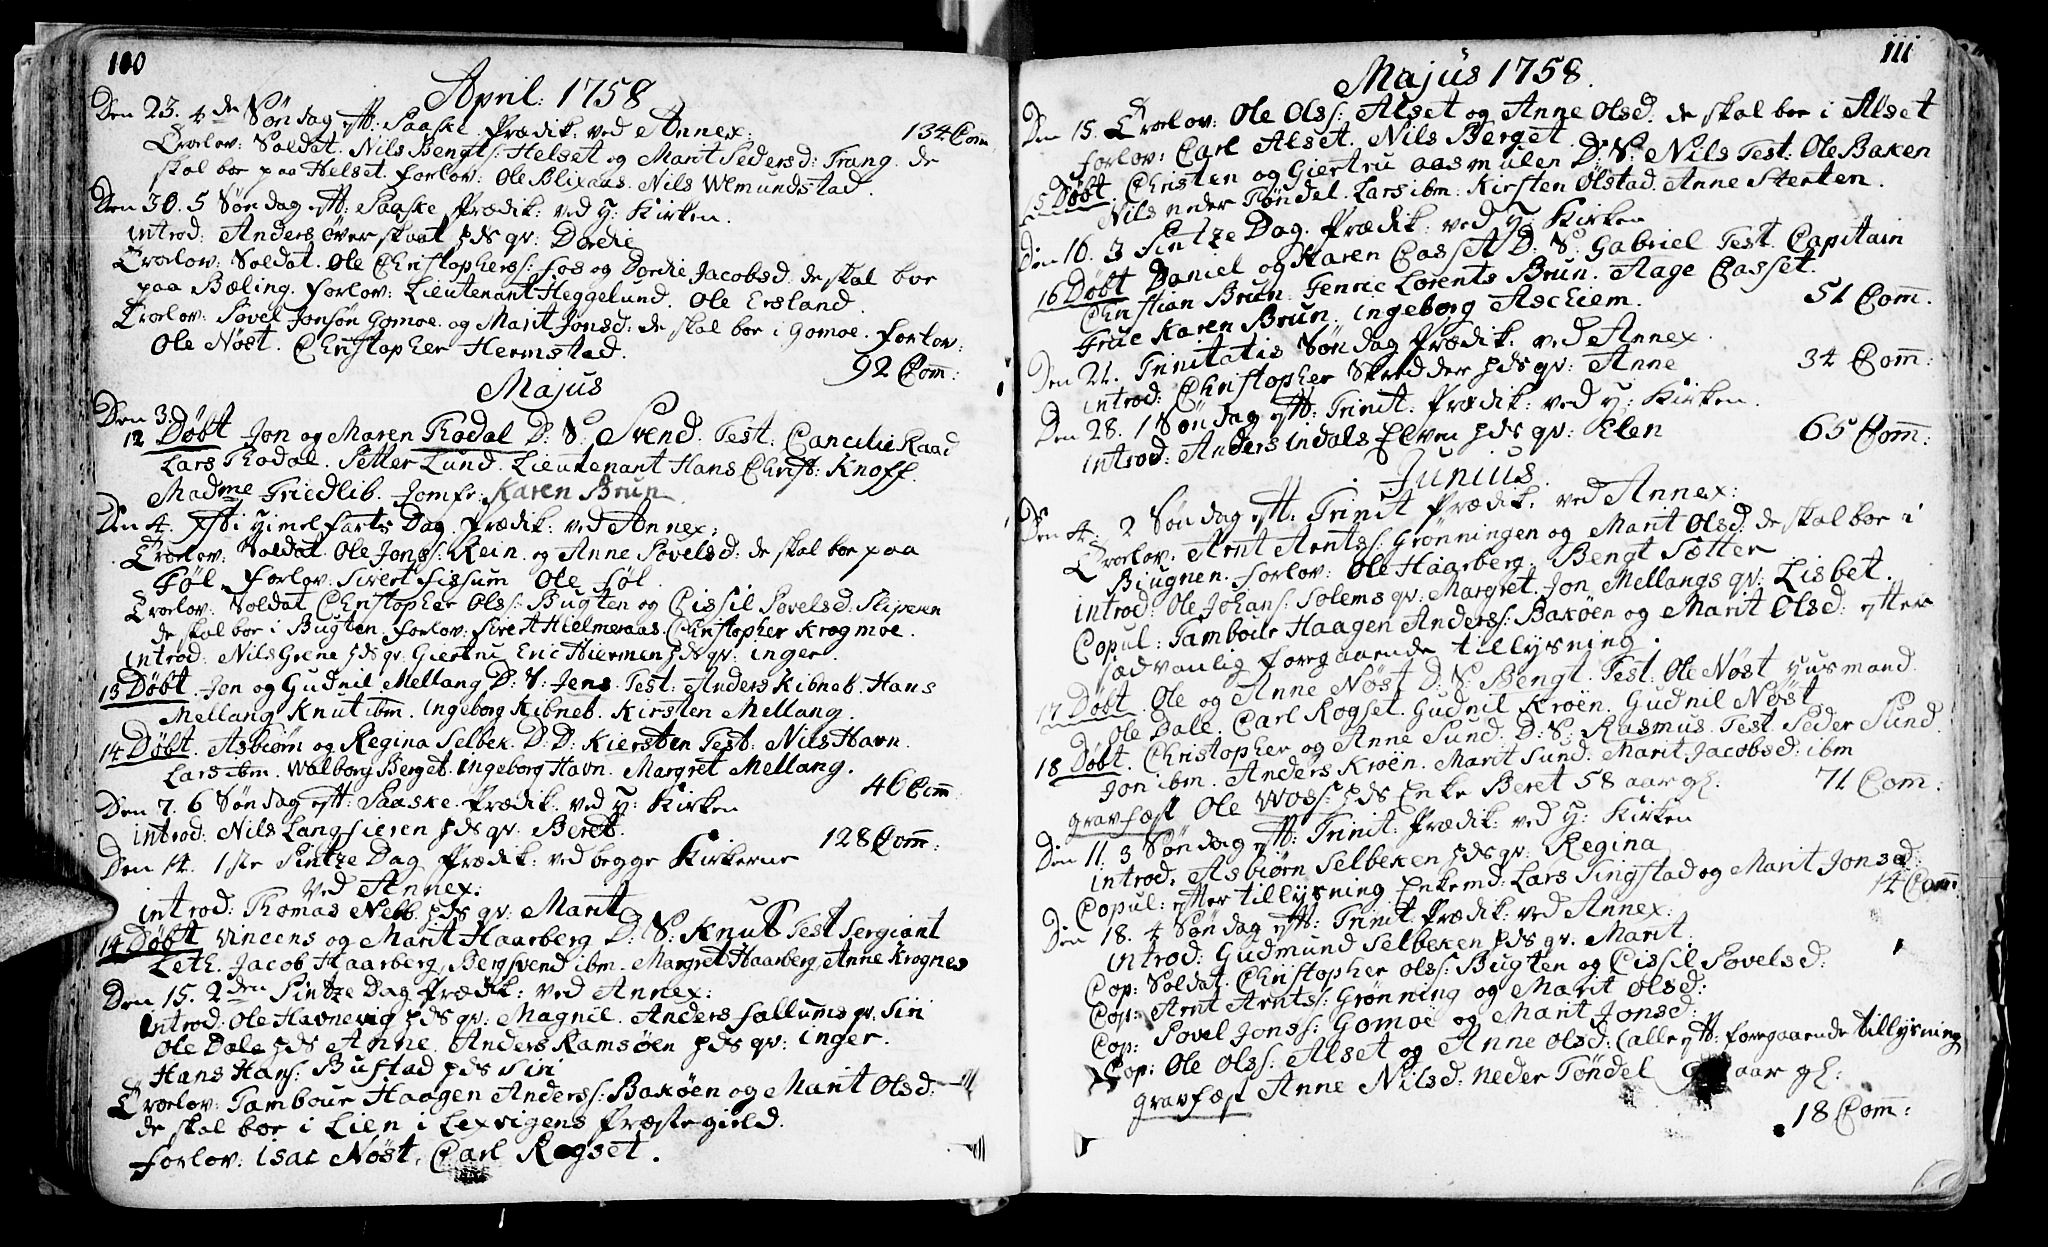 110
April: 1758
Den 23. 4de Søndag efft: Paaske. Prædik: ved Annex:
134 Com̄
Troelov: Soldat. Nils Bengts: Helset og Marit Pedersd: Trang. de
skal boe paa Helset. forlov: Ole Blixaas. Nils Wlmundstad.
Den 30. 5 Søndag efft: Paaske Prædik: ved H: Kirken.
introd: Anders Overskaat hds qv: Dordie
Troelov: Soldat. Ole Christophers: Fos og Dordie Jacobsd: de skal boe
paa Bæling. forlov: Lieutenant Heggelund. Ole Ersland.
Troelov: Povel Jonsøn Gomoe. og Marit Jonsd: de skal boe i Gomoe. forlov:
Ole Nøst. Christopher Hermstad.
92 Com̄:
Majus
Den 3.
12 Døbt Jon og Maren Rodal D: S: Svend. Test: Cancilie Raad
Lars Rodal. Petter Lund. Lieutenant Hans Christ: Knoff.
Madme Friedlib. Jomfr: Karen Brun
Den 4. xsti Himelfarts Dag. Prædik: ved Annex:
Troelov: Soldat. Ole Jons: Rein. og Anne Povelsd: de skal boe paa
Føl. forlov: Sivert Fissum Ole Føl.
Troelov: Soldat Christopher Ols: Bugten og Cissil Povelsd: Slipern
de skal boe i Bugten. forlov: Sivert Hielmeraas. Christopher Krogmoe.
introd: Nils Grene hds qv: Giertru Eric Hiermen hds qv: inger.
13 Døbt. Jon og Gudnil Mellang D: S: Jens. Test: Anders Kibneb. Hans
Mellang Knut ibm. ingeborg Kibneb. Kirsten Mellang.
14 Døbt. Asbiørn og Regina Selbek. D: D: Kiersten Test: Nils Havn.
Lars ibm. Walborg Berget. ingeborg Havn. Margret Mellang.
46 Com̄
Den 7. 6 Søndag efft: Paaske. Prædik: ved H: Kirken
introd: Nils Langsieren hds qv: Beret.
128 Com̄:
Den 14. 1ste Pintze Dag Prædik: ved begge Kirkerne
Ved Annex:
introd: Thomas Nebb. hds qv: Marit
14 Døbt Vincens og Marit Haarberg D: S: Knut Test Sergiant
Leth. Jacob Haarberg, Bergsvend ibm. Margret Haarberg, Anne Krognes
Den 15. 2den Pintze Dag Prædik: ved Annex:
introd: Ole Havnevig hds qv: Magnil. Anders Fallums qv. Siri
Ole Dale hds Anne. Anders Ramsøen hds qv: inger.
Hans Hans: Bustad hds Siri
Troelov: Tambour Haagen Anders: Bakøen og Marit Olsd:
de skal boe i Lien i Lexvigens Præstegield.
forlov: isac Nøst, Carl Rogset.
111
Majus 1758.
Den 15. Troelov: Ole Ols: Alset og Anne Olsd. de skal boe i Alset
forlov: Carl Alset. Nils Berget.
15 Døbt. Christen og Giertru aasmulen D: S: Nils Test: Ole Baken
Nils neder Tøndel. Lars ibm: Kirsten Ølstad. Anne Sterten.
Den 16. 3 Pintze Dag. Prædik: ved H: Kirken
16 Døbt Daniel og Karen Casset D: S. Gabriel Test. Capitain
Christian Brun. Henric Lorents Brun. Aage Casset.
Frue Karen Brun. ingeborg Aschiem.
51 Com̄.
Den 21. Trinitatis Søndag Prædik: ved Annex.
introd: Christopher Skredder hds qv: Anne
34 Com̄:
Den 28. 1 Søndag efft: Trinit. Prædik: ved H: Kirken.
introd: Anders indals Elven hds qv: Elen
65 Com̄:
Junius
Den 4. 2 Søndag efft: Trinit Prædik: ved Annex:
Troelov: Arnt Arnts: Grønningen og Marit Olsd: de skal boe i
Biugnen. forlov: Ole Haarberg. Bengt Sætter
introd: Ole Johans: Solems qv: Margret. Jon Mellangs qv: Lisbet.
Copul: Tambour Haagen Anders: Bakøen og Marit Olsd: efter
sædvanlig foregaaende tillysning.
17 Døbt. Ole og Anne Nøst D: S Bengt. Test: Ole Nøst Husmand
Ole Dale. Carl Rogset. Gudnil Kroen. Gudnil Nøst
18 Døbt. Christopher og Anne Sund. D: S: Rasmus Test Peder Sund.
Jon ibm. Anders Kroen. Marit Sund. Marit Jacobsd: ibm
gravfæst Ole Wols: hds Enke Beret 58 aar gl.
71 Com:
Den 11. 3 Søndag efft: Trinit: Prædik: ved H: Kirken
introd: Asbiørn Selbeken hds qv: Regina
Copul: efter tillysning Enkemd: Lars Singstad og Marit Jonsd:
14 Com̄:
Den 18. 4 Søndag efft: Trinit Prædik: ved Annex:
introd: Gudmund Selbeken hds qv. Marit.
Cop: Soldat. Christopher ols: Bugten og Cissil Povelsd:
Cop: Arnt Arnts: Grønning og Marit Olsd:
Cop: Povel Jons: Gomoe og Marit Jonsd:
Cop: Ole Ols: Alset og Anne Olsd: (alle efft: foregaaende tillysning
gravfæst Anne Nilsd: neder Tøndel aar gl:
18 Com̄: